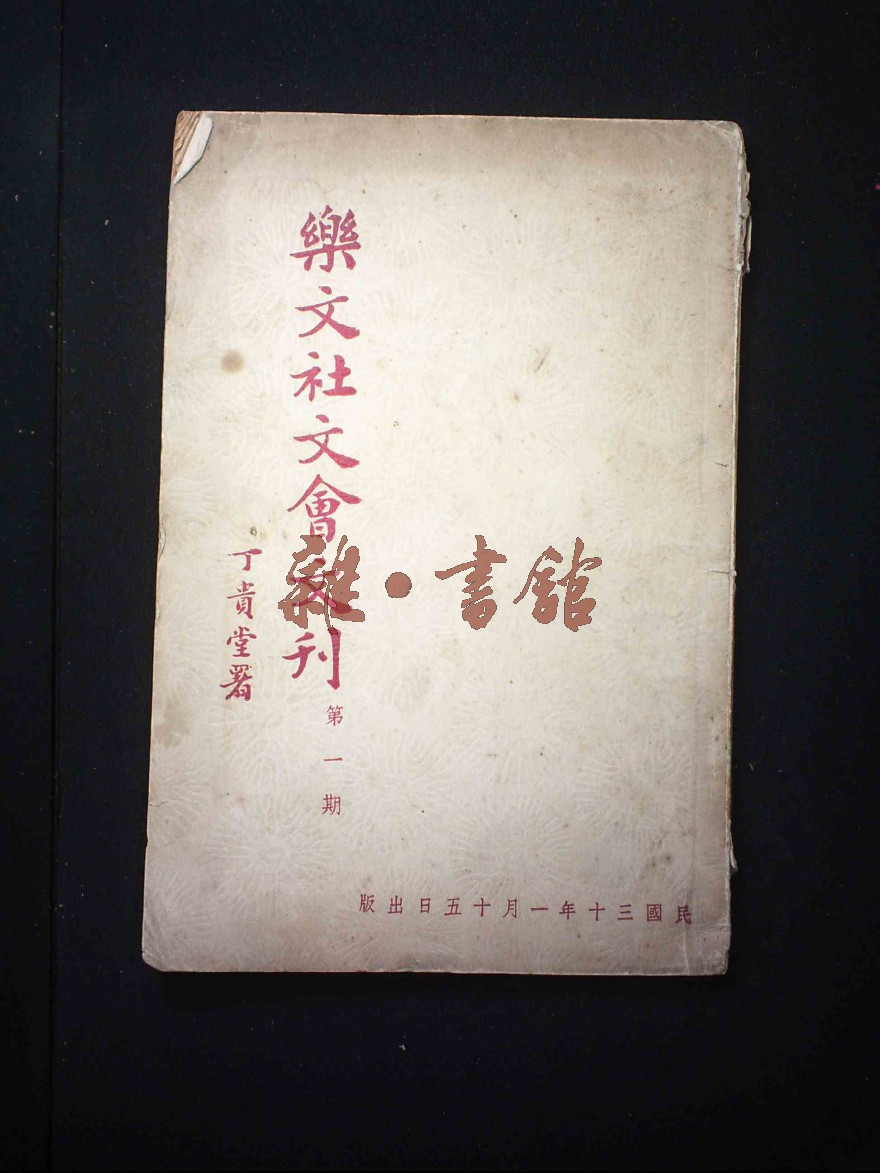 樂文社文會文刊
丁貴堂署
第一期
民國三十年一月十五日出版
雜·書館